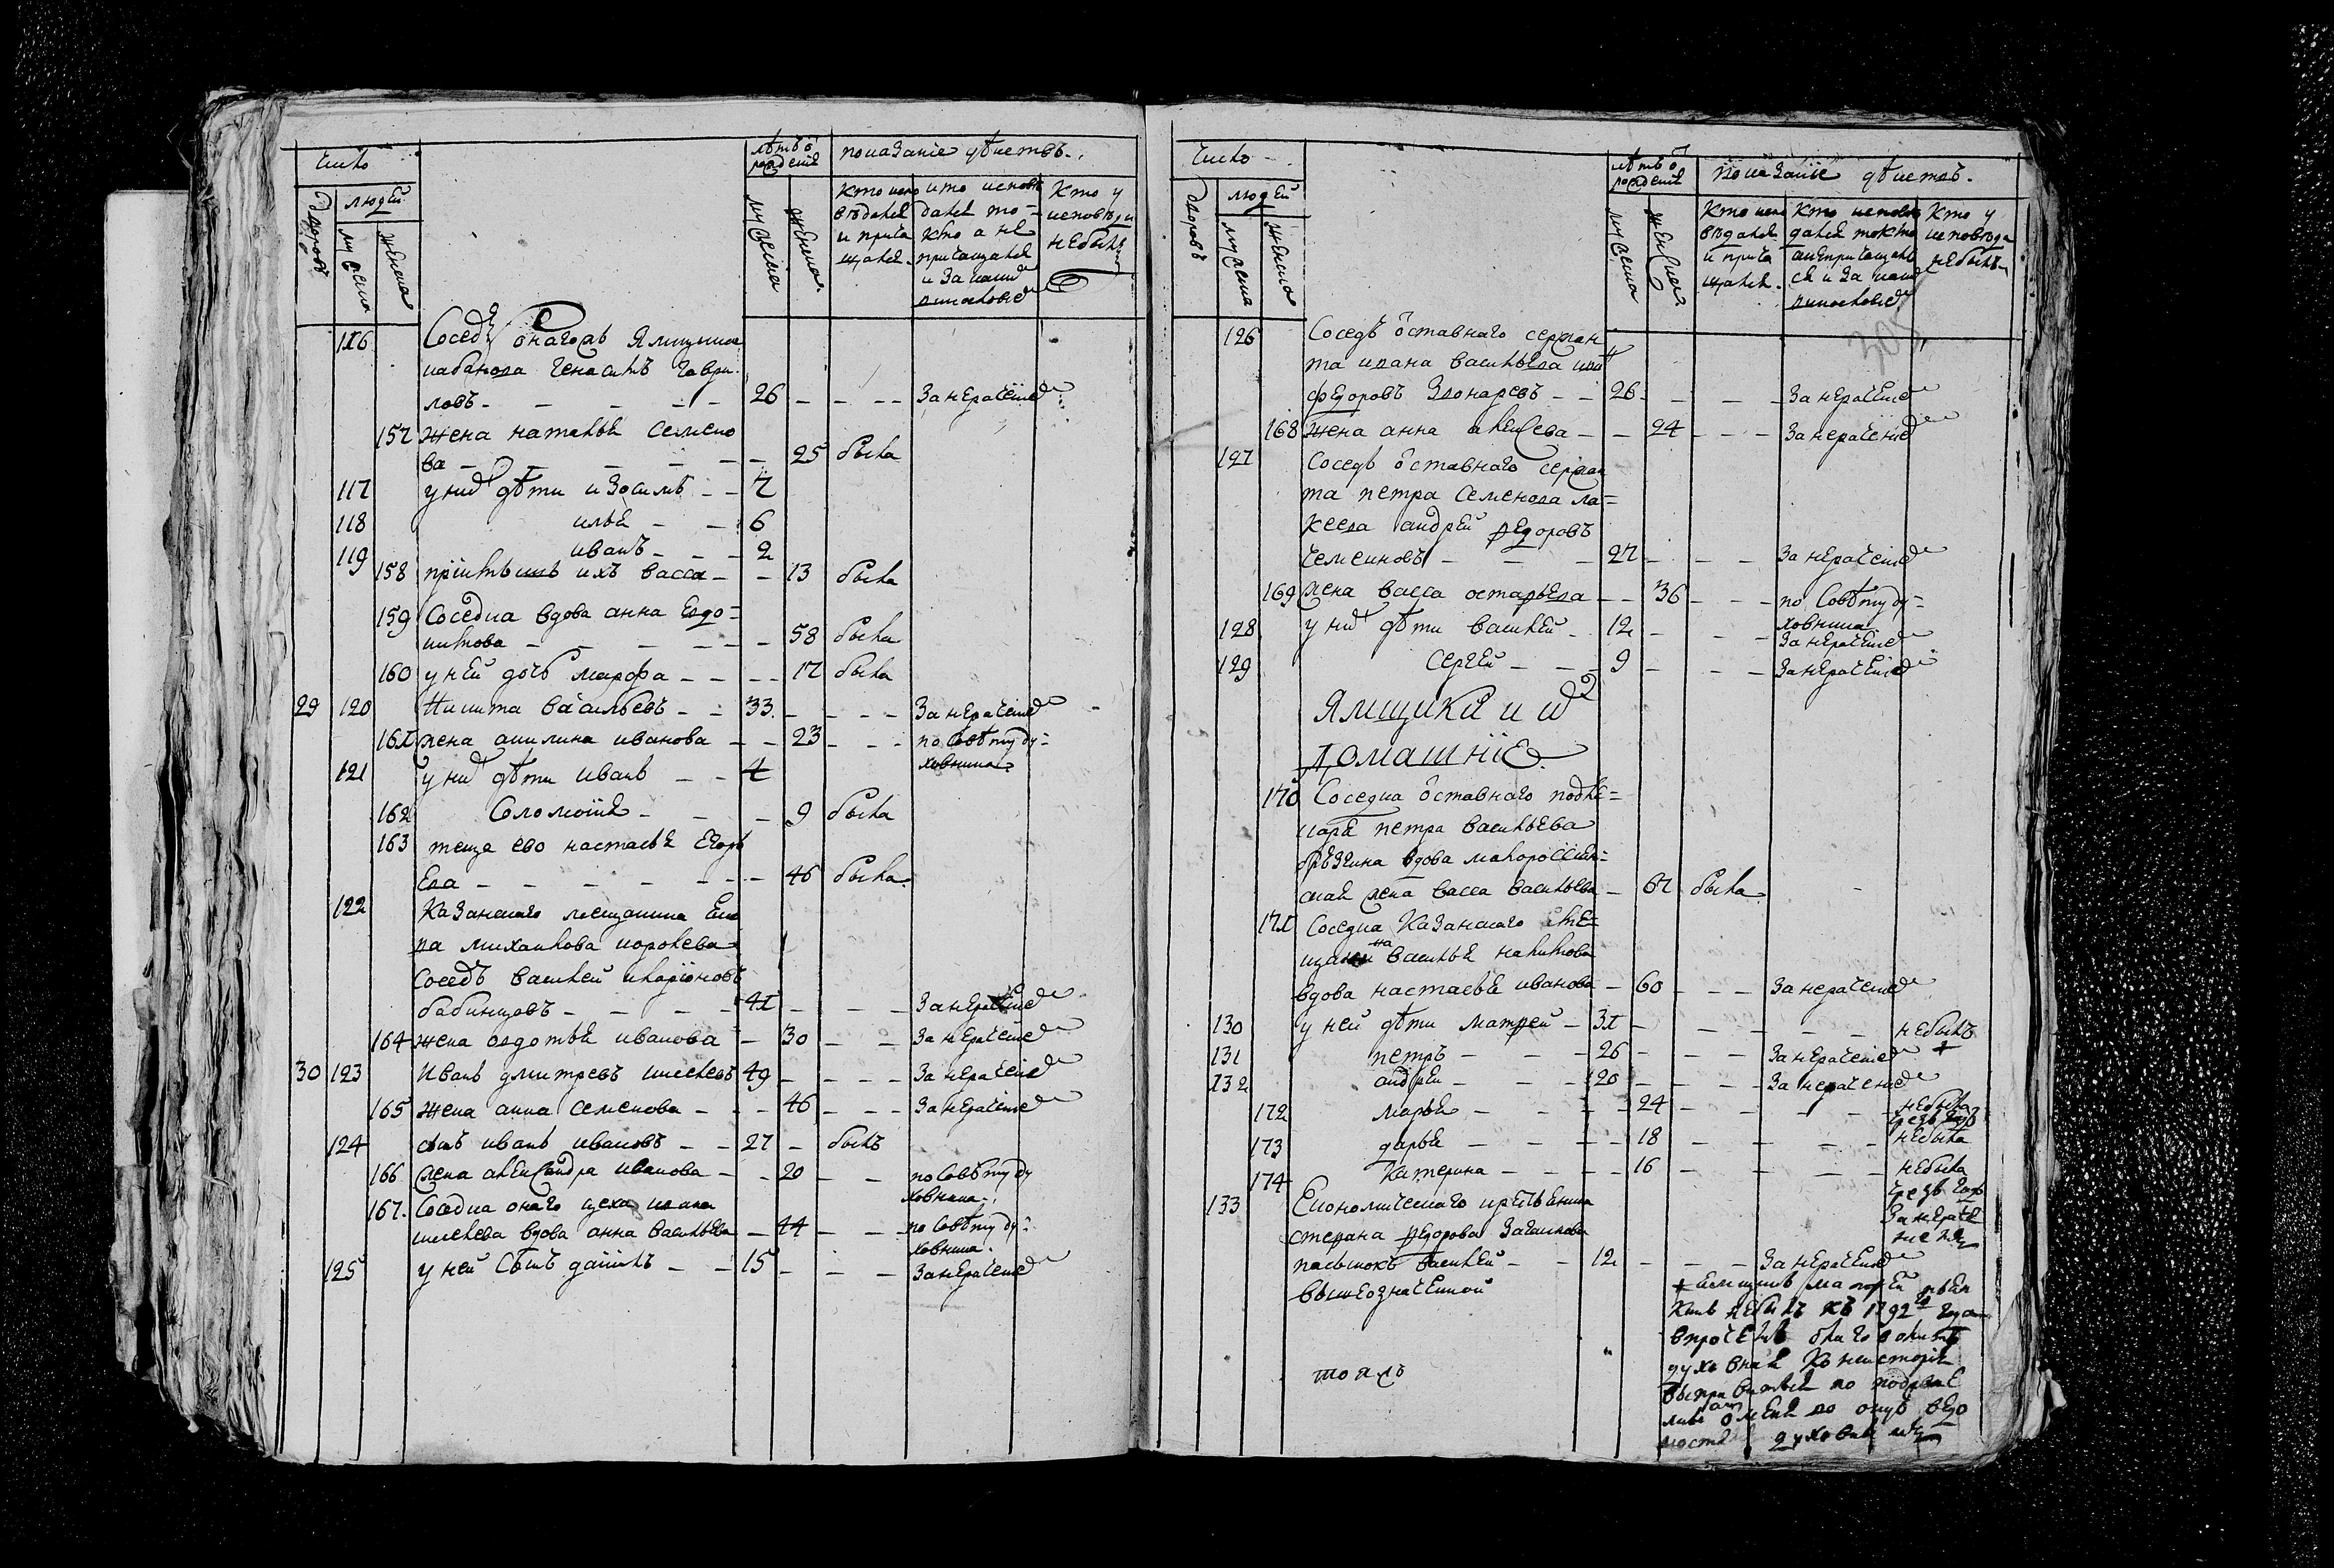 Число
лѣтъ ѿ рожденія
показаніе дѣйствъ
дворовъ
людей
мужеска
женска
мужска
женска
Кто испо
вѣдался
и прича
щался
кто исповѣ
дался то=
кто а не
причащался
и за какимъ
винословіемъ
Кто у
исповѣди
небылъ
116 Сосѣдъ онагожъ Ямщика
кабанова Гаври
ловъ 26 За нераченіемъ
157 Жена наталья семено
ва 25 была
117 у нихъ дѣти изосимъ 7
118 илья 6
119 иванъ 2
158 пріемышъ ихъ васса 13 была
159 Соседка вдова анна Евдо=
кимова 58 была
160 у ней дочь марфа 17 была
29 120 Никита васильевъ 33 За нераченіемъ
161 жена акилина иванова 23 по совѣту ду=
ховника
121 у нихъ дѣти иванъ 4
162 Соломонія 9 была
163 теща ево настасья Егорь
Ева 46 была
122 Казанскаго мещанина
михаилова королева
Соседъ василей иларіоновъ
бабинцовъ 41 За нераченіемъ
164 жена овдотья иванова 30 За нераченіемъ
30 123 Иванъ дмитревъ 49 За нераченіемъ
165 Жена анна семенова 46 За нераченіемъ
124 сынъ иванъ ивановъ 27 былъ
166 жена александра иванова 20 по совѣту ду
ховника
167 Соседка онаго цеха ивана
вдова анна васильева 44 по совѣту ду=
ховника
125 у ней сынъ данилъ 15 За нераченіемъ
Число
лѣтъ ѿ рожденія
показаніе дѣйствъ
дворовъ
людей
мужеска
женска
мужеска
женска
Кто испо
вѣдался
и прича
щался
Кто исповѣ
дался токмо
а непричащалъ
ся и за какимъ
винословіемъ
Кто у
исповѣди
небылъ
305
126 Соседъ ѿставнаго сержан
та ивана васильева
федоровъ Звонаревъ 26 За нераченіемъ
168 жена анна алексеева 24 За нераченіемъ
127 Соседъ ѿставнаго сержан
та петра Семенова ла=
кеева андрей федоровъ
27 За нераченіемъ
169 жена васса остафьева 36 по совѣту ду=
ховника
128 у нихъ дѣти василей 12 За нераченіемъ
129 Сергей 9 За нераченіемъ
Ямщики и ихъ
домашніе
170 Соседка ѿставнаго подле=
каря петра васильева
вдова малороссій=
ская жена васса васильева 67 была
171 Соседка Казанскаго
щанина василья
вдова настасья иванова 60 За нераченіемъ
130 у ней дѣти матфей 31 небылъ
+
131 петръ 26 За нераченіемъ
132 андрей 20 За нераченіемъ
172 марья 24 небыла
чрезъ годъ
173 дарья 18 небыла
174 Катерина 16 небыла
чрезъ годъ
За нераче
ніемъ
133 Економическаго крестьянина
стефана федорова
пасынокъ василей 12 За нераченіемъ
вышеозначенной
+ Ямщикъ матфей
небылъ къ 1792 года
впрочемъ благоволитъ
духовная Консисторія